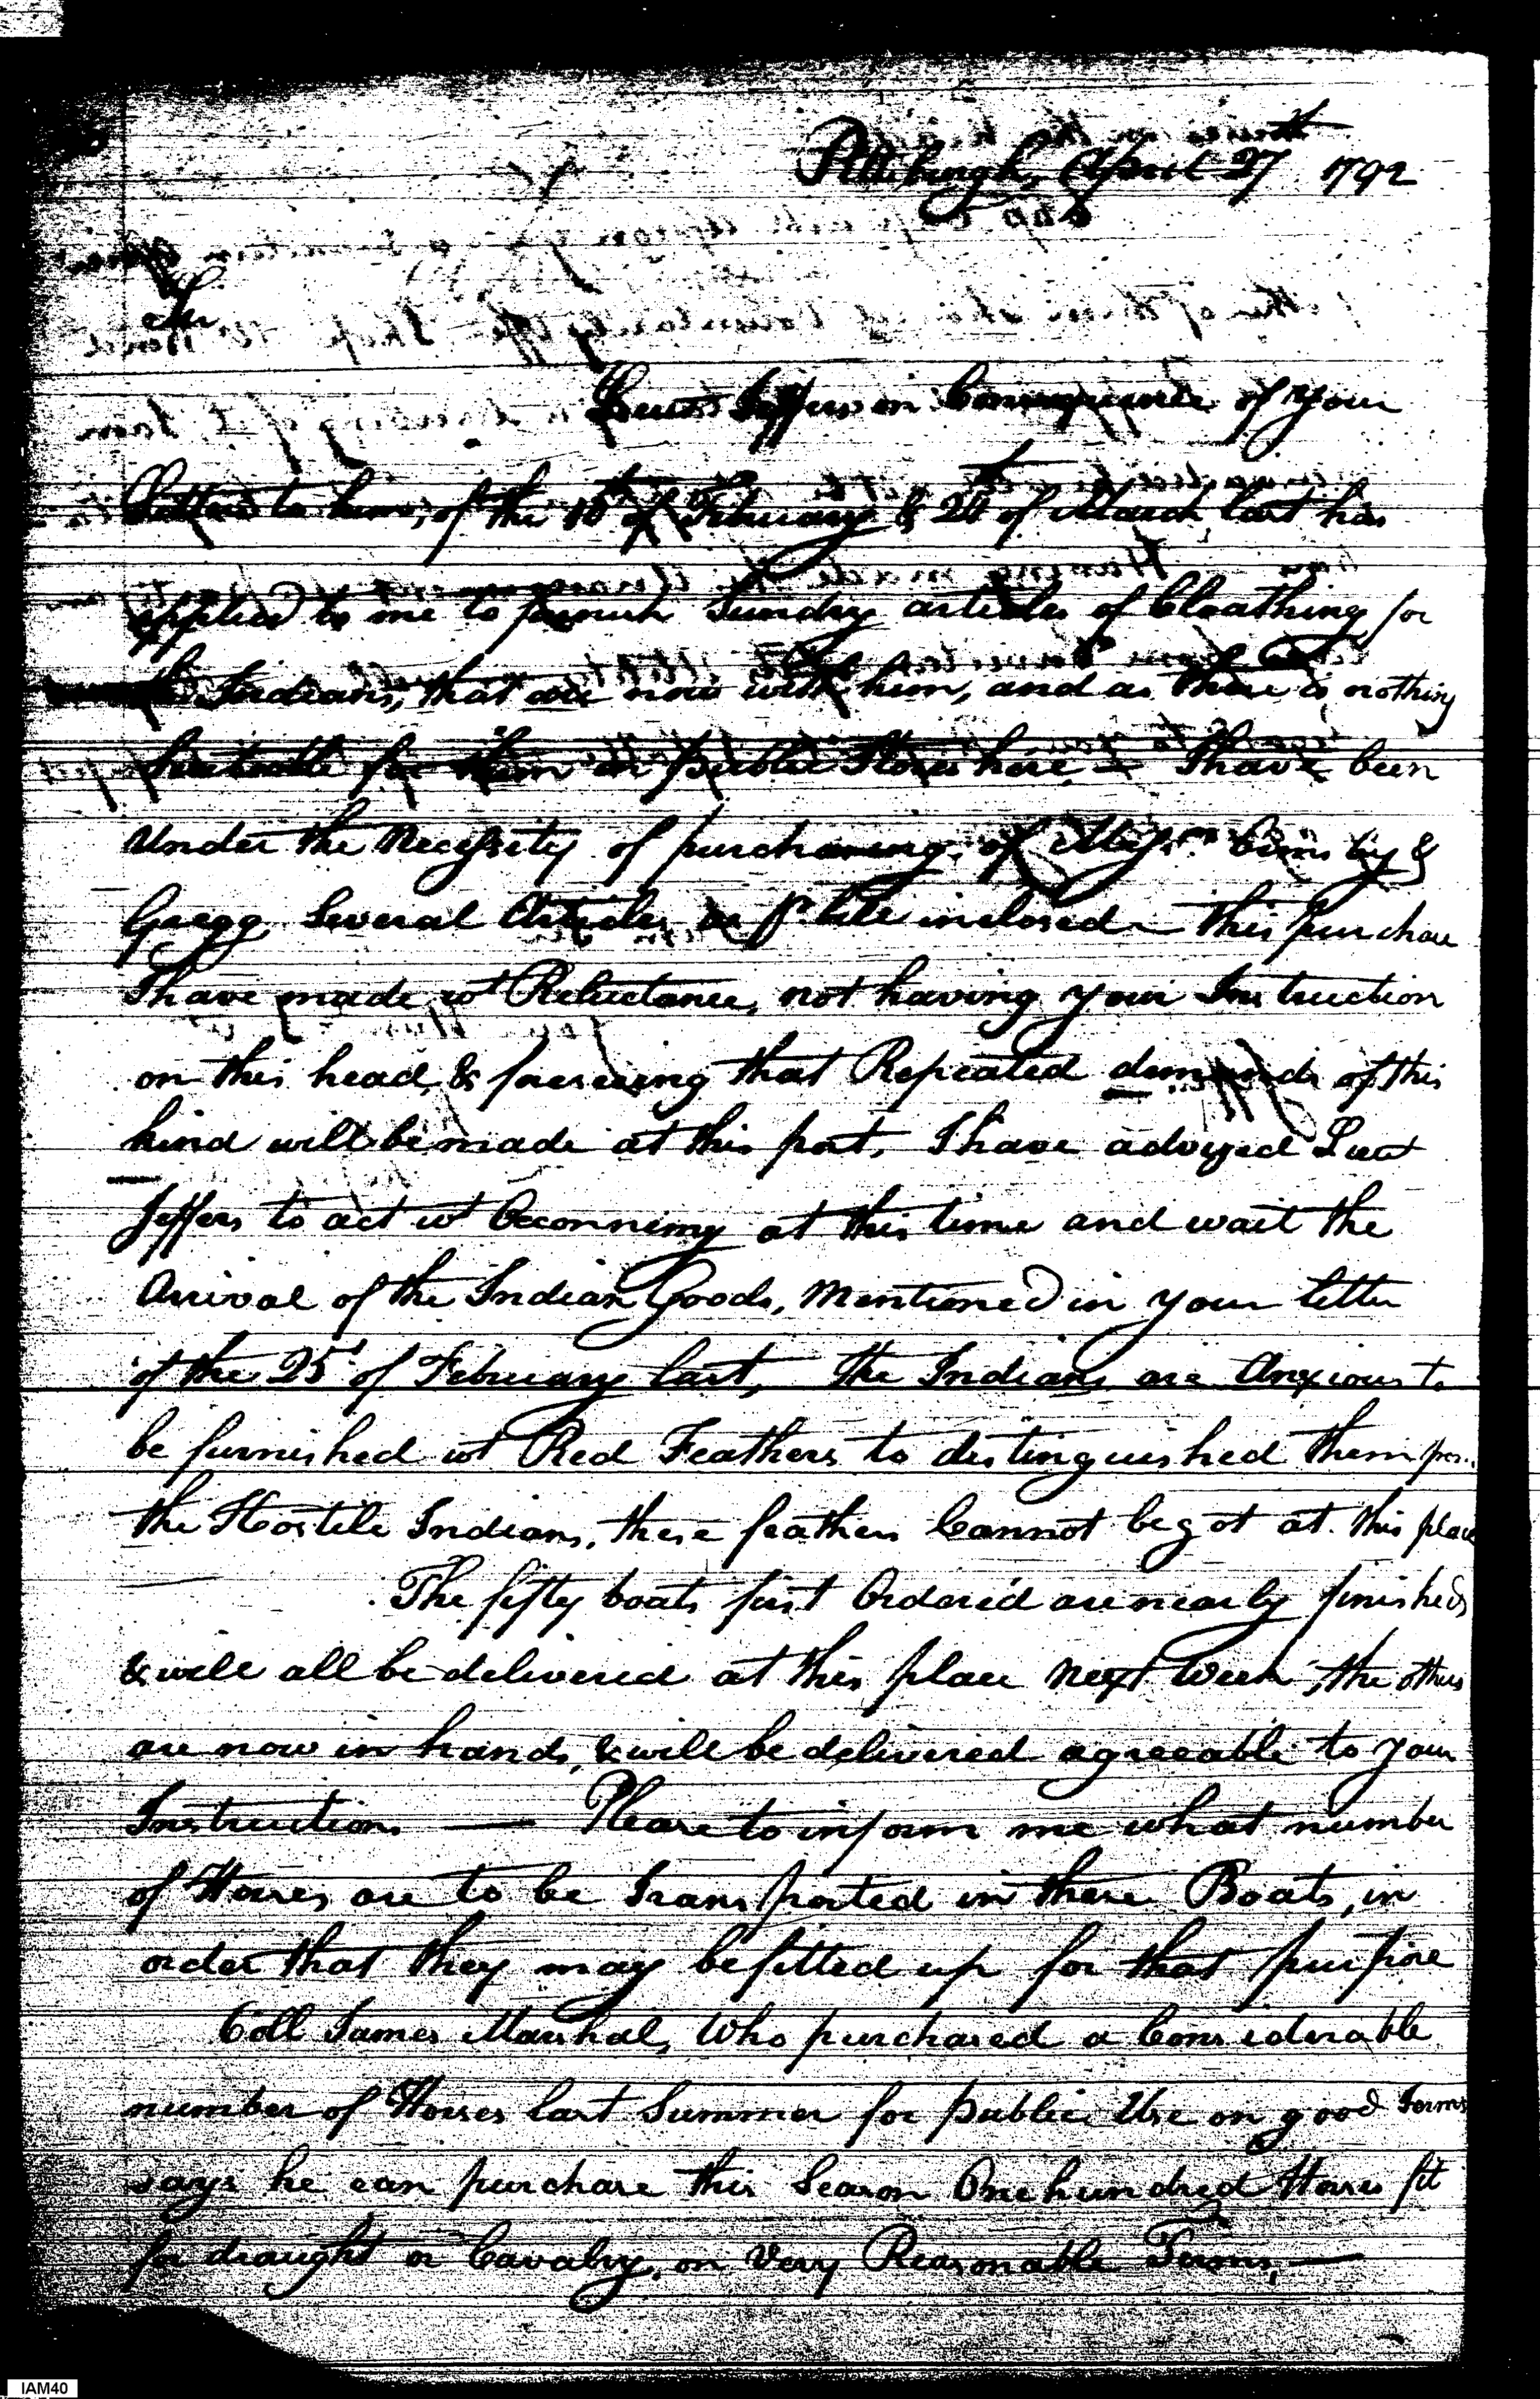 Pittsburgh, April 27th 1792
Sir
Lieut Jeffers in Consequence of your
Letters to him, of the 10th of February & 24th of March last has
applied to me to furnish Sundry articles of Cloathing for
the Indians, that are now with him, and as there is nothing
for them in public Stores here, I have been
Under the Necessity of purchasing of Messrs &
Gregg Several Articles as pr bill inclosed This purchase
I have made wt Reluctance, not having your Instruction
on this head, & foreseeing that Repeated demands of this
kind will be made at this post, I have advysed Lieut
Jeffers to act wt Oeconnimy at this time and wait the
Arrival of the Indian Goods, Mentioned in your letter
of the 25t of February last, The Indians are Anxious to
be furnished wt Red Feathers to distinguished them from
the Hostile Indians, these feathers Cannot be got at this place
The fifty boats first Ordered are nearly finished
& will all be delivered at this place next Week, the others
are now in hands, & will be delivered agreeable to your
Instructions — Please to inform me what number
of Horses are to be Transported in these Boats, in
order that they may be fitted up for that purpose
Coll James Marshal, Who purchased a Considerable
number of Horses last Summer for public Use on good Terms
says he can purchase this Season One hundred Horses fit
for draught or Cavalry, on Very Reasonable Terms, —
IAM40